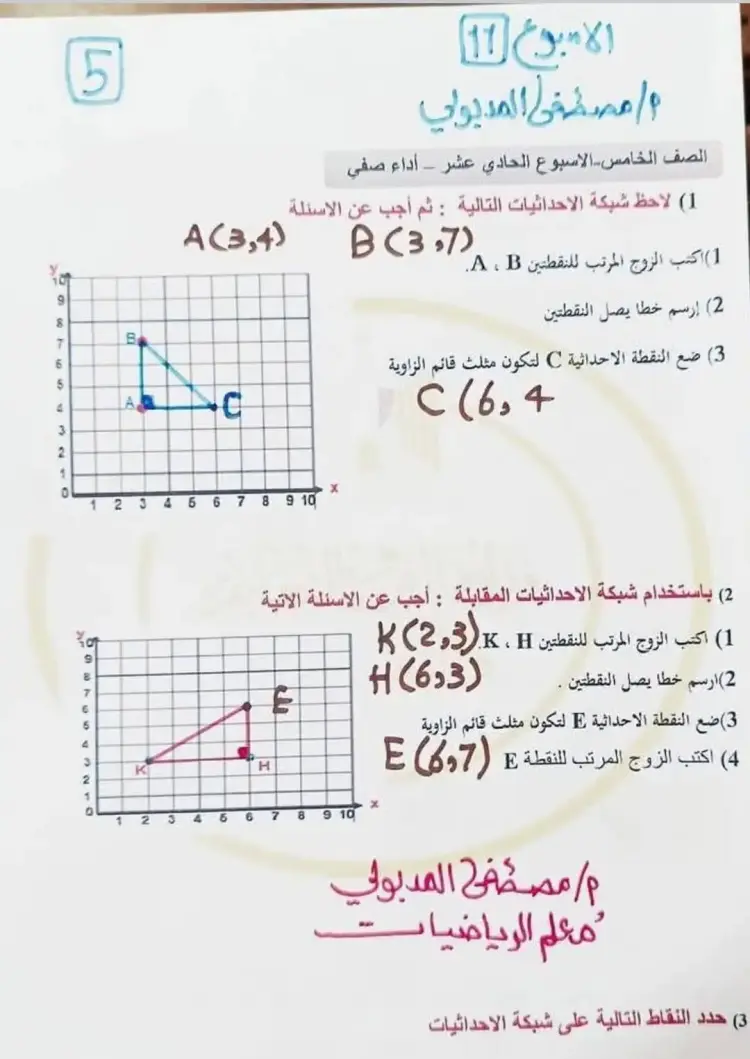 الاسبوع 11
5
م/ مصطفى المدبولي
الصف الخامس-الاسبوع الحادي عشر – أداء صفي
1) لاحظ شبكة الاحداثيات التالية : ثم أجب عن الاسئلة
A(3,4) B(3,7)
1)اكتب الزوج المرتب للنقطتين A ، B.
2) إرسم خطا يصل النقطتين
3) ضع النقطة الاحداثية C لتكون مثلث قائم الزاوية
C(6,4
y
10
9
8
7
6
5
4
3
2
1
0
B
A
C
1 2 3 4 5 6 7 8 9 10
x
2) باستخدام شبكة الاحداثيات المقابلة : أجب عن الاسئلة الاتية
1) اكتب الزوج المرتب للنقطتين K ، H. K(2,3)
2)ارسم خطا يصل النقطتين . H(6,3)
3)ضع النقطة الاحداثية E لتكون مثلث قائم الزاوية
4) اكتب الزوج المرتب للنقطة E E(6,7)
y
10
9
8
7
6
5
4
3
2
1
0
E
K
H
1 2 3 4 5 6 7 8 9 10
x
م/ مصطفى المدبولي
معلم الرياضيات
3) حدد النقاط التالية على شبكة الاحداثيات